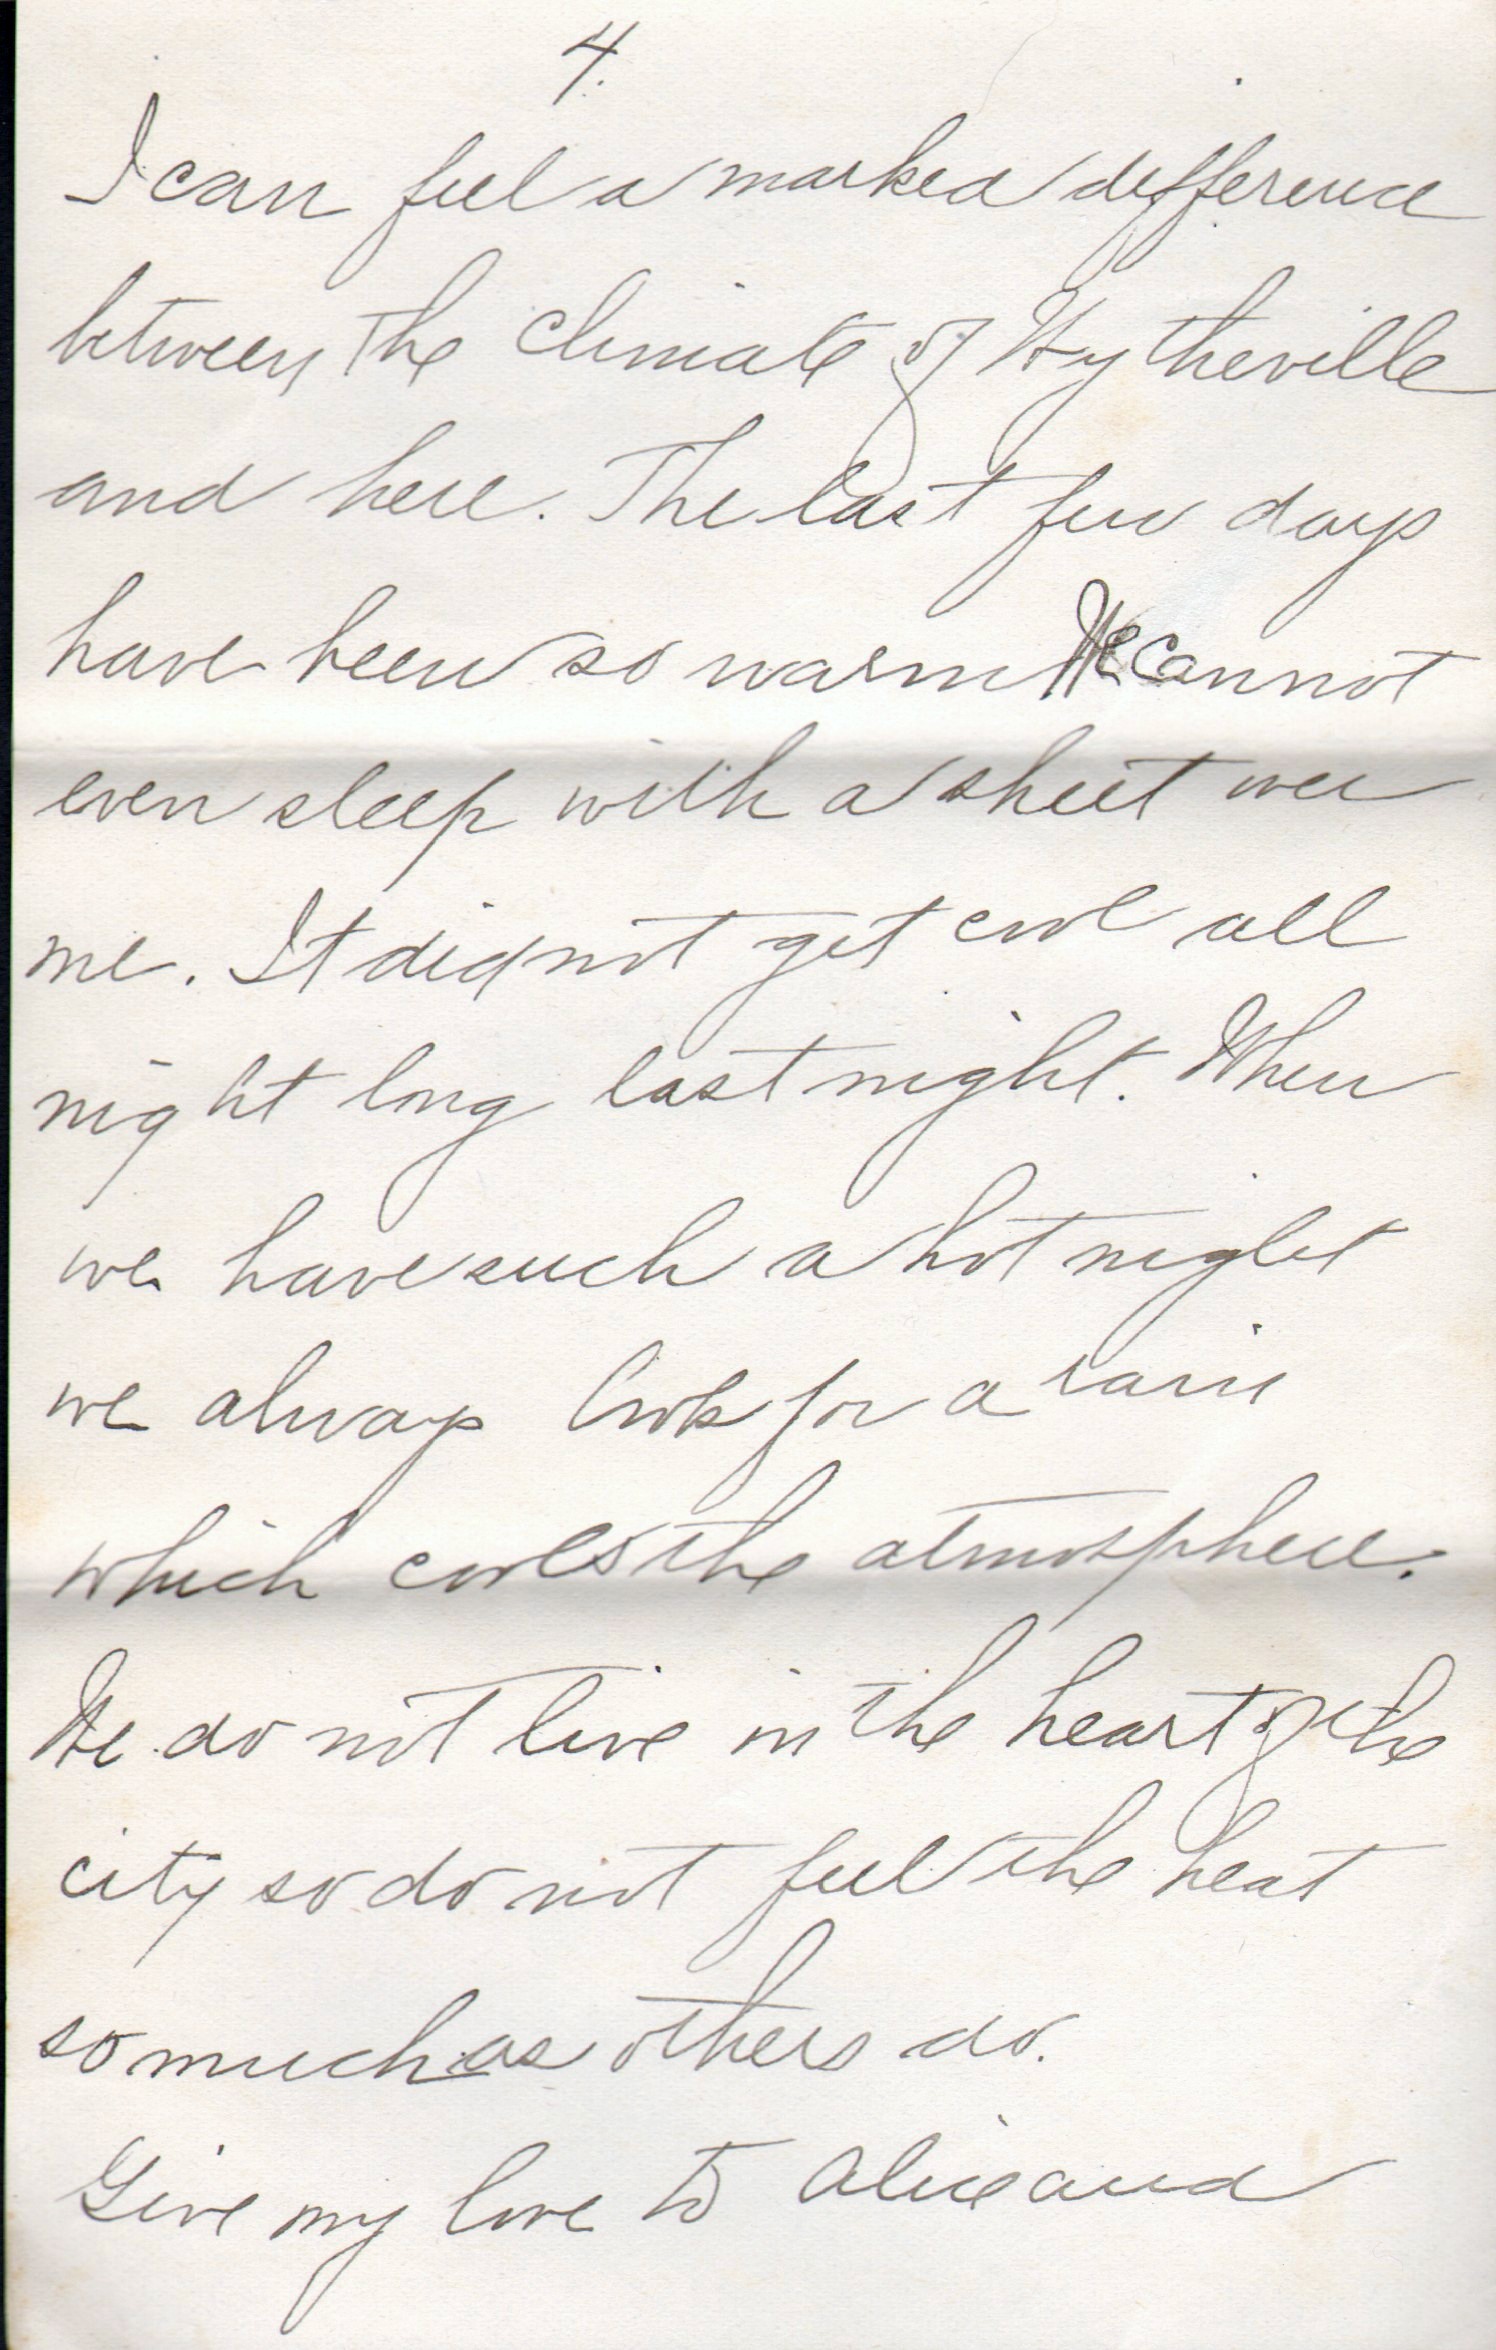 4.
I can feel a marked difference
between the climate of Wytheville
and here. The last few days
have been so warm We cannot
even sleep with a sheet over
me. It did not get cool all
night long last night. When
we have such a hot night
we always look for a rain
which cools the atmosphere.
We do not live in the heart of the
city so do not feel the heat
so much as others do.
Give my love to Alice and